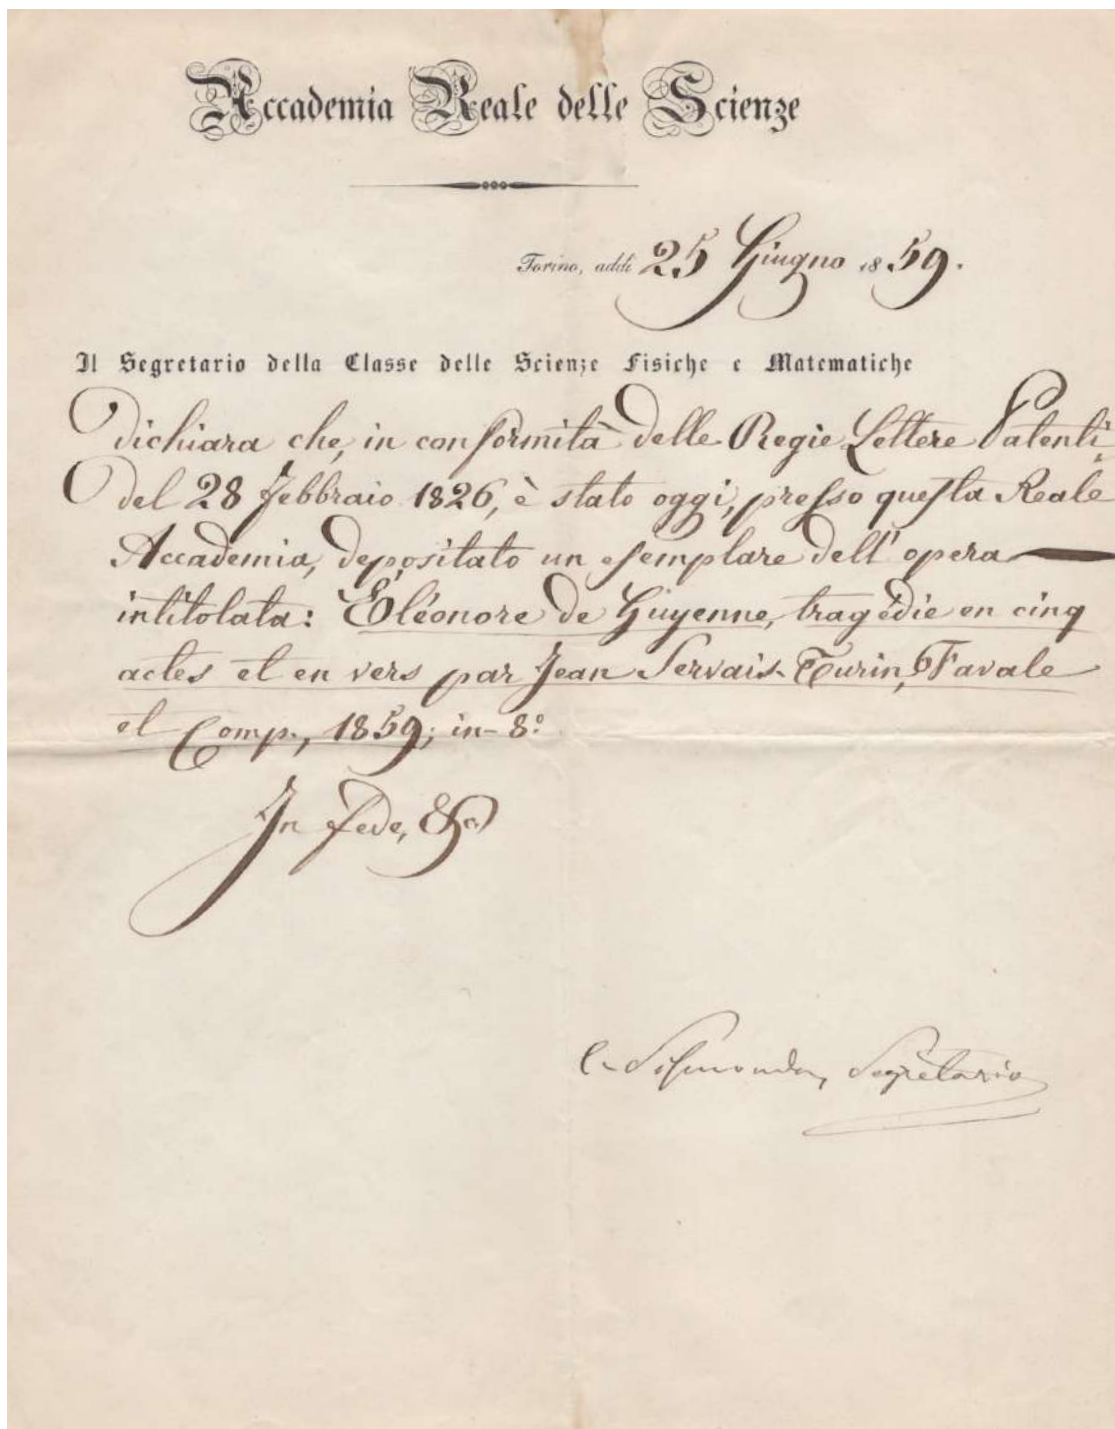 Accademia Reale delle Scienze
Torino, addì 25 Giugno 1859.
Il Segretario della Classe delle Scienze Fisiche e Matematiche
dichiara che, in conformità delle Regie Lettere Patenti,
del 28 Febbraio 1826, è stato oggi, presso questa Reale
Accademia, depositato un esemplare dell'opera
intitolata: Éléonore de Guyenne, tragédie en cinq
actes et en vers par Jean Servais. Turin, Favale
et Comp., 1859; in-8.º
In fede, &c
E. Sismonda, Segretario